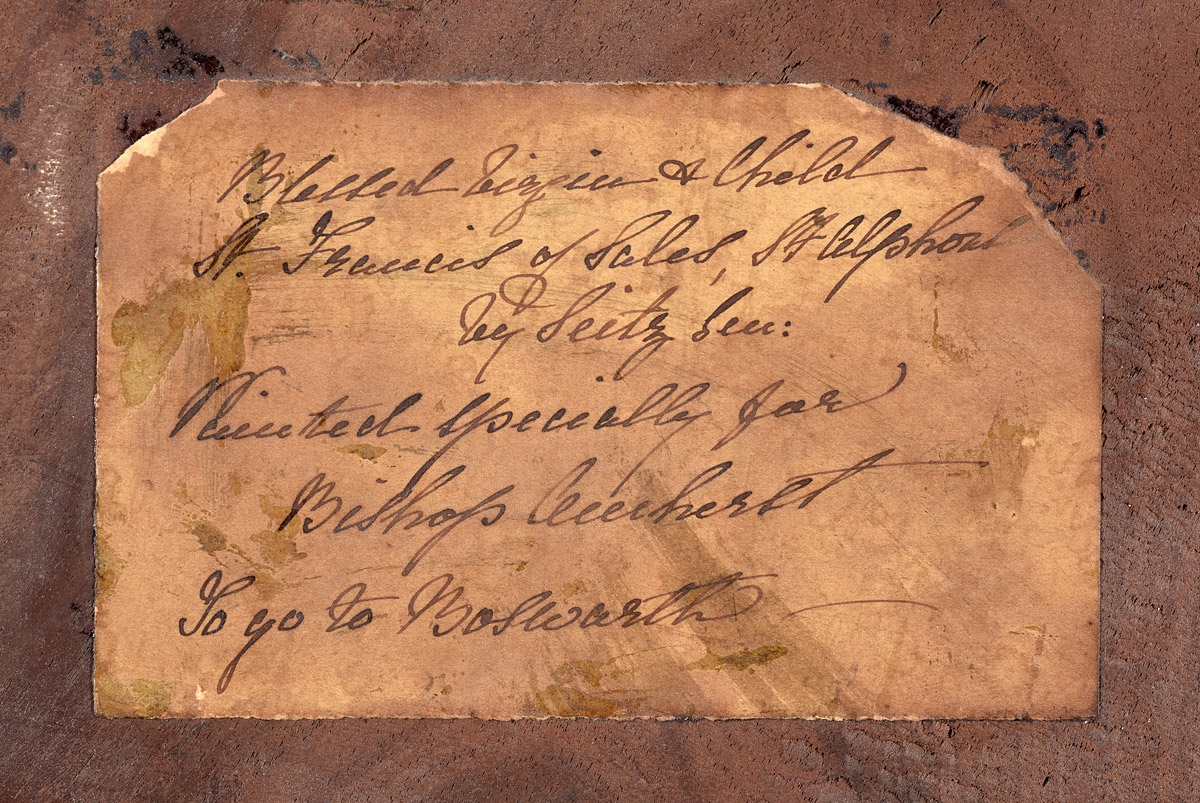 Blessed Virgin & Child
St. Francis of Sales, St Alphons
by Seitz Sen:
Painted specially for
Bishop Amherst
To go to Bosworth